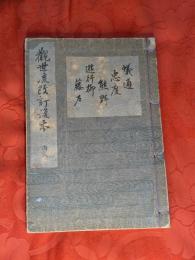 蟻通
忠度
熊野
遊行柳
藤戸
觀世流改訂謡本